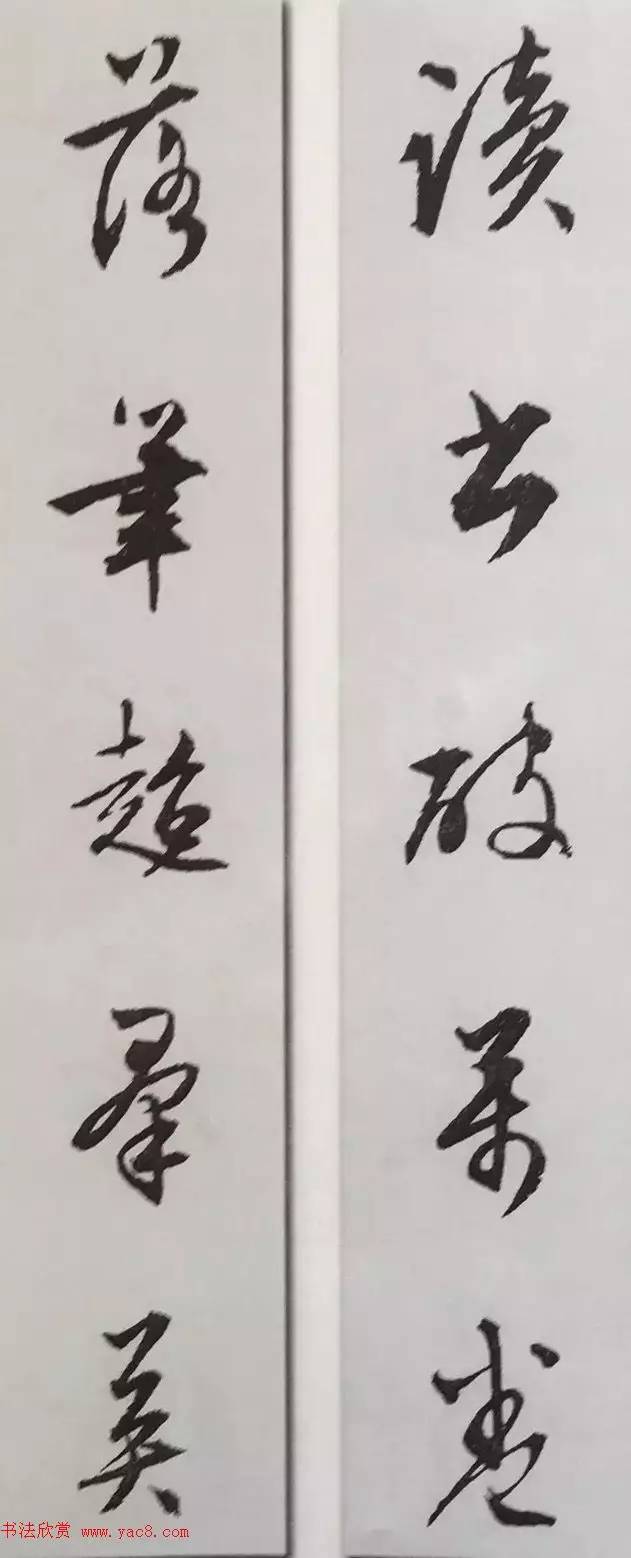 讀書破萬卷
落筆超羣英
书法欣赏 www.yac8.com